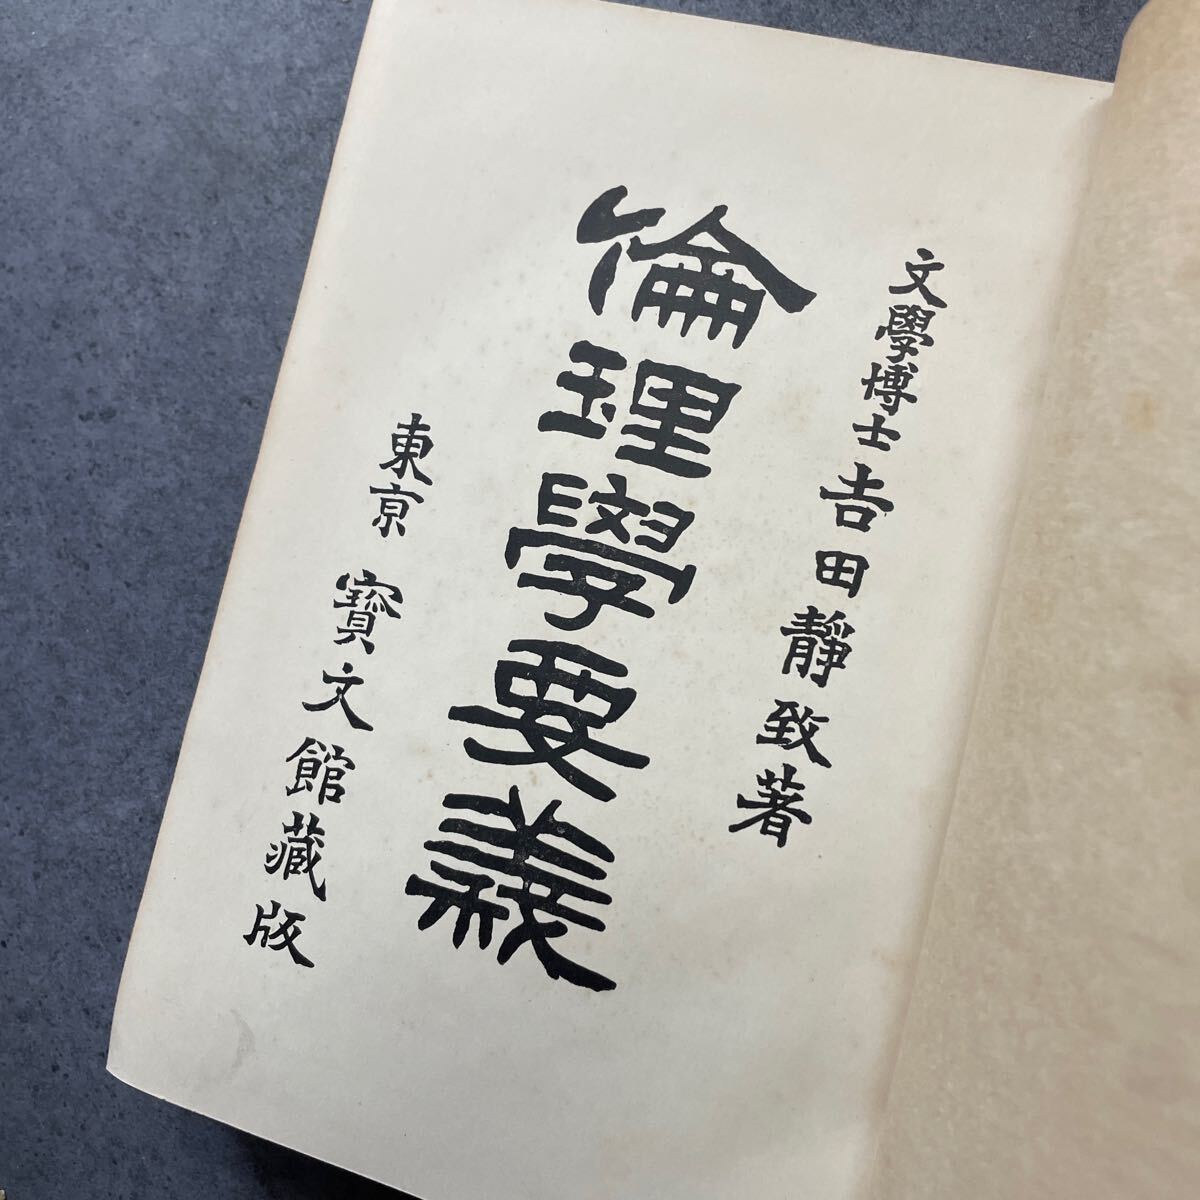 文學博士 吉田靜致著
倫理學要義
東京 寶文館藏版